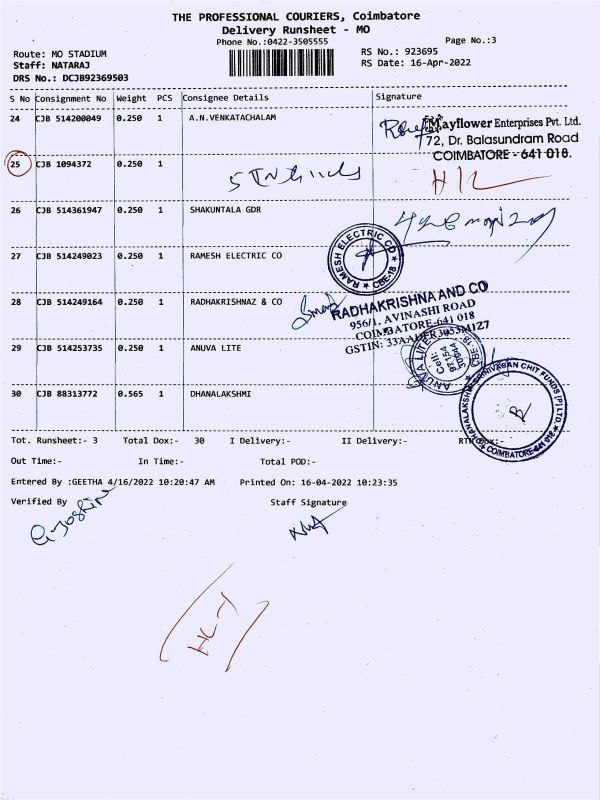 THE PROFESSIONAL COURIERS, Coimbatore
Delivery Runsheet - MO
Phone No.:0422-3505555
Page No.:3
Route: MO STADIUM
Staff: NATARAJ
DRS No.: DCJB92369503
RS No.: 923695
RS Date: 16-Apr-2022
S No Consignment No Weight PCS Consignee Details Signature
24 CJB 514200049 0.250 1 A.N.VENKATACHALAM
Mayflower Enterprises Pvt. Ltd.
72, Dr. Balasundram Road
COIMBATORE - 641 018.
25 CJB 1094372 0.250 1
26 CJB 514361947 0.250 1 SHAKUNTALA GDR
27 CJB 514249023 0.250 1 RAMESH ELECTRIC CO
RAMESH ELECTRIC CO CBE-18
28 CJB 514249164 0.250 1 RADHAKRISHNAZ & CO
RADHAKRISHNA AND CO
956/1, AVINASHI ROAD
COIMBATORE-641 018
29 CJB 514253735 0.250 1 ANUVA LITE
ANUVA LITE CBE-18
Cell:
97154
30 CJB 88313772 0.565 1 DHANALAKSHMI
DHANALAKSHMI SRINIVASAN CHIT FUNDS (P) LTD.
COIMBATORE-641 018
Tot. Runsheet:- 3 Total Dox:- 30 I Delivery:- II Delivery:-
Out Time:- In Time:- Total POD:-
Entered By :GEETHA 4/16/2022 10:20:47 AM Printed On: 16-04-2022 10:23:35
Verified By Staff Signature